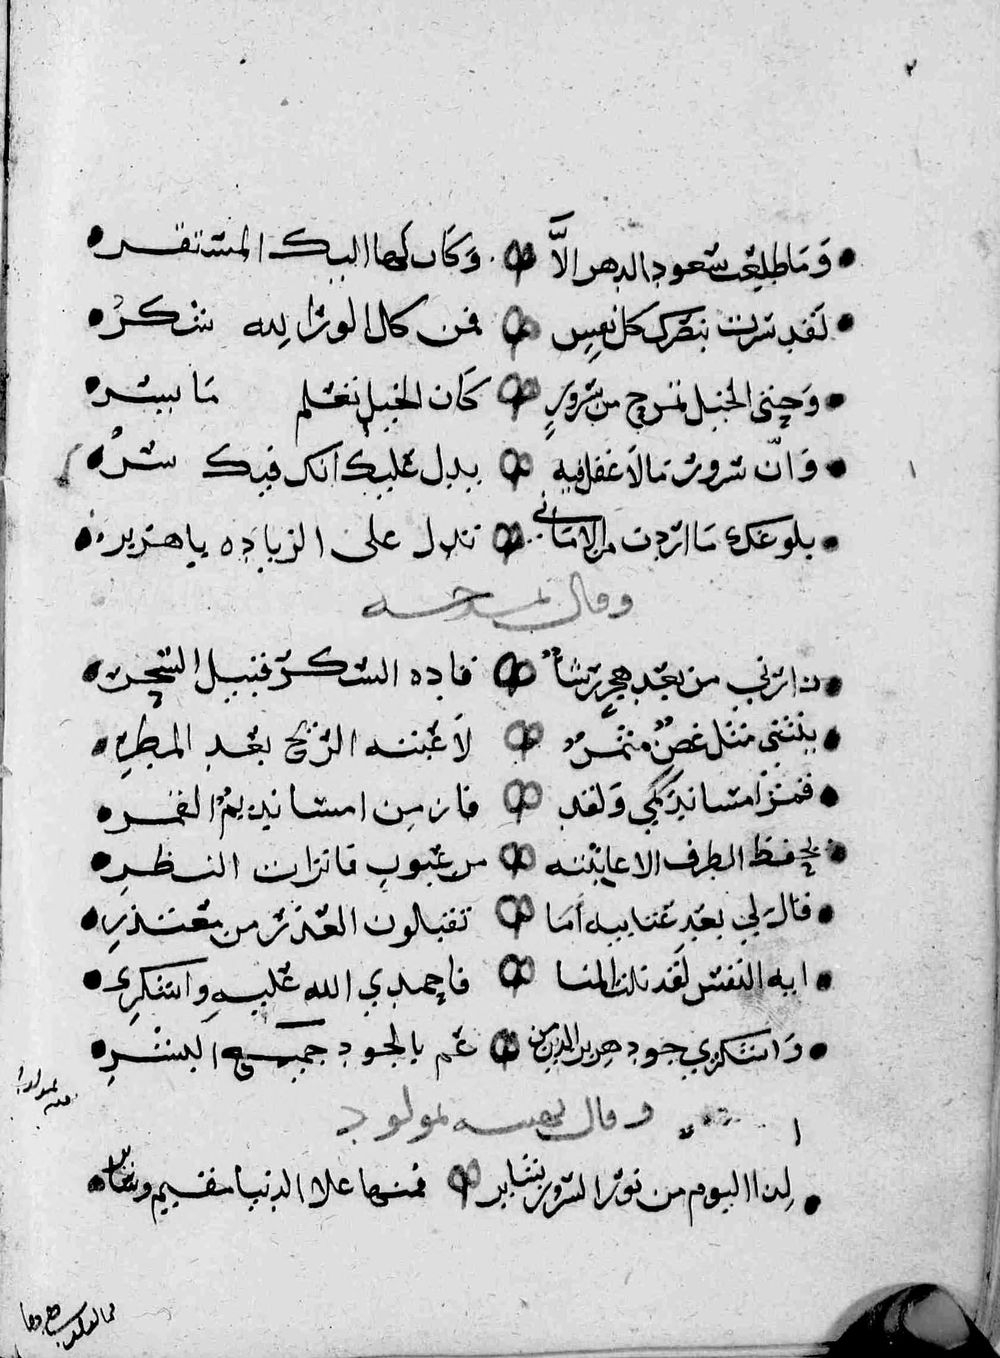 ٢
وَمَا طلعت سعود الدهر الَّا وَكَان لها اليك المستقر
لَقد سرت بنصرك كل نفس فمن كل الورا لله شكرُ
وَحتى الخيل تمرح من سرورٍ كَان الخيل تعلم مَا يسر
وَانّ سرور مالا عقل فيه يدل عليك انك فيك سرُ
بلوغك مَا اردت من الامَانى تدل على الزيَاده يا هزبر
وقال يمدحه
زارني من بعد هجرٍ رشأ قاده الشكر قبيل السَّحَر
ينثنى مثل غصنٍ مثمرٍ لَاعبته الريح بعد المطر
قمرًا مسا نديمي وَلقد فاز من امسا نديم القمر
يحفظ الطرف الا عاينته من عيوبٍ قاتلات النظرِ
قال لي بعد عتابيه أمَا تقبلون العذر من معتذرِ
ايه النفس لقد نلت المنا فاحمدي الله عليهِ واشكرى
وَاشكري جود هزبر الدين من عم بالجود جميع البشرِ
وقال يهنيه بمولود
لِذا اليوم من نور السرور بشاير فمنها علا الدنيا مقيم وسَاير